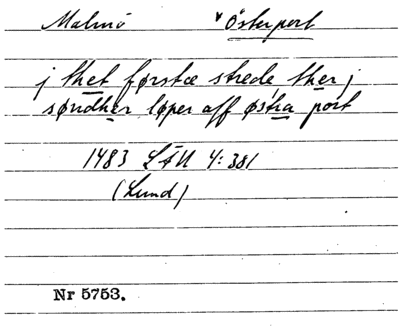 Malmö * Österport
j thet første strede, ther j
søndher løper aff østra port
1483 LÄU 4:381
(Lund)
Nr 5753.